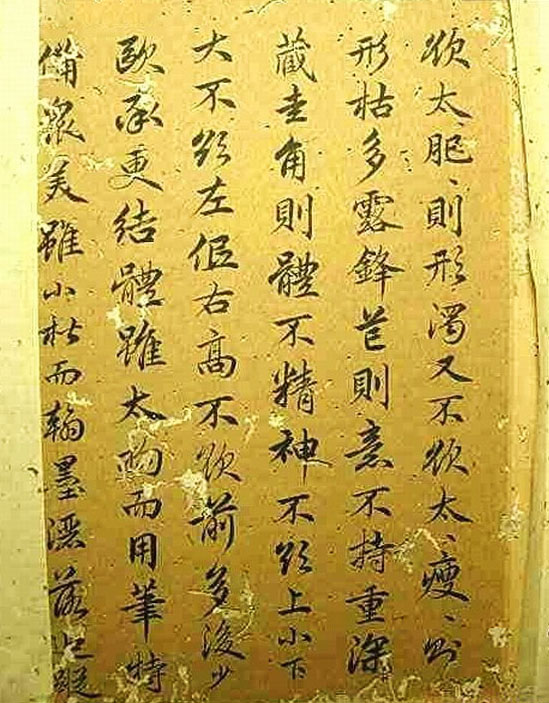 欲太肥、則形濁又不欲太、瘦、則
形枯多露鋒芒則意不持重深
藏圭角則體不精神不欲上小下
大不欲左低右高不欲前多後少
歐率更結體雖太拘而用筆特
備衆美雖小楷而翰墨灑落追蹤